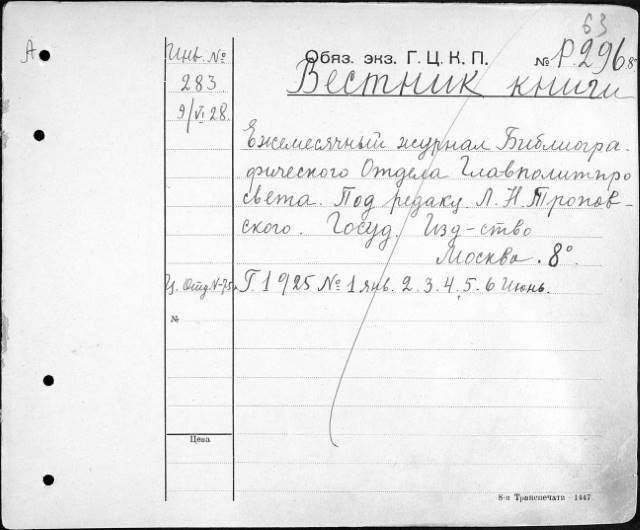 63
А
Инв. №
283
9/VI 28.
Обяз. экз. Г. Ц. К. П. № Р.296.8°
Вестник книги
Ежемесячный журнал Библиогра-
фического Отдела Главполитпро
света. Под редакц. Л. Н. Тропов-
ского. Госуд. Изд-ство
Москва. 8°.
Ц. Отд N-75к.
Г. 1925 № 1 янв. 2. 3. 4. 5. 6 Июнь.
№
Цена
8-я Транспечати - 1447